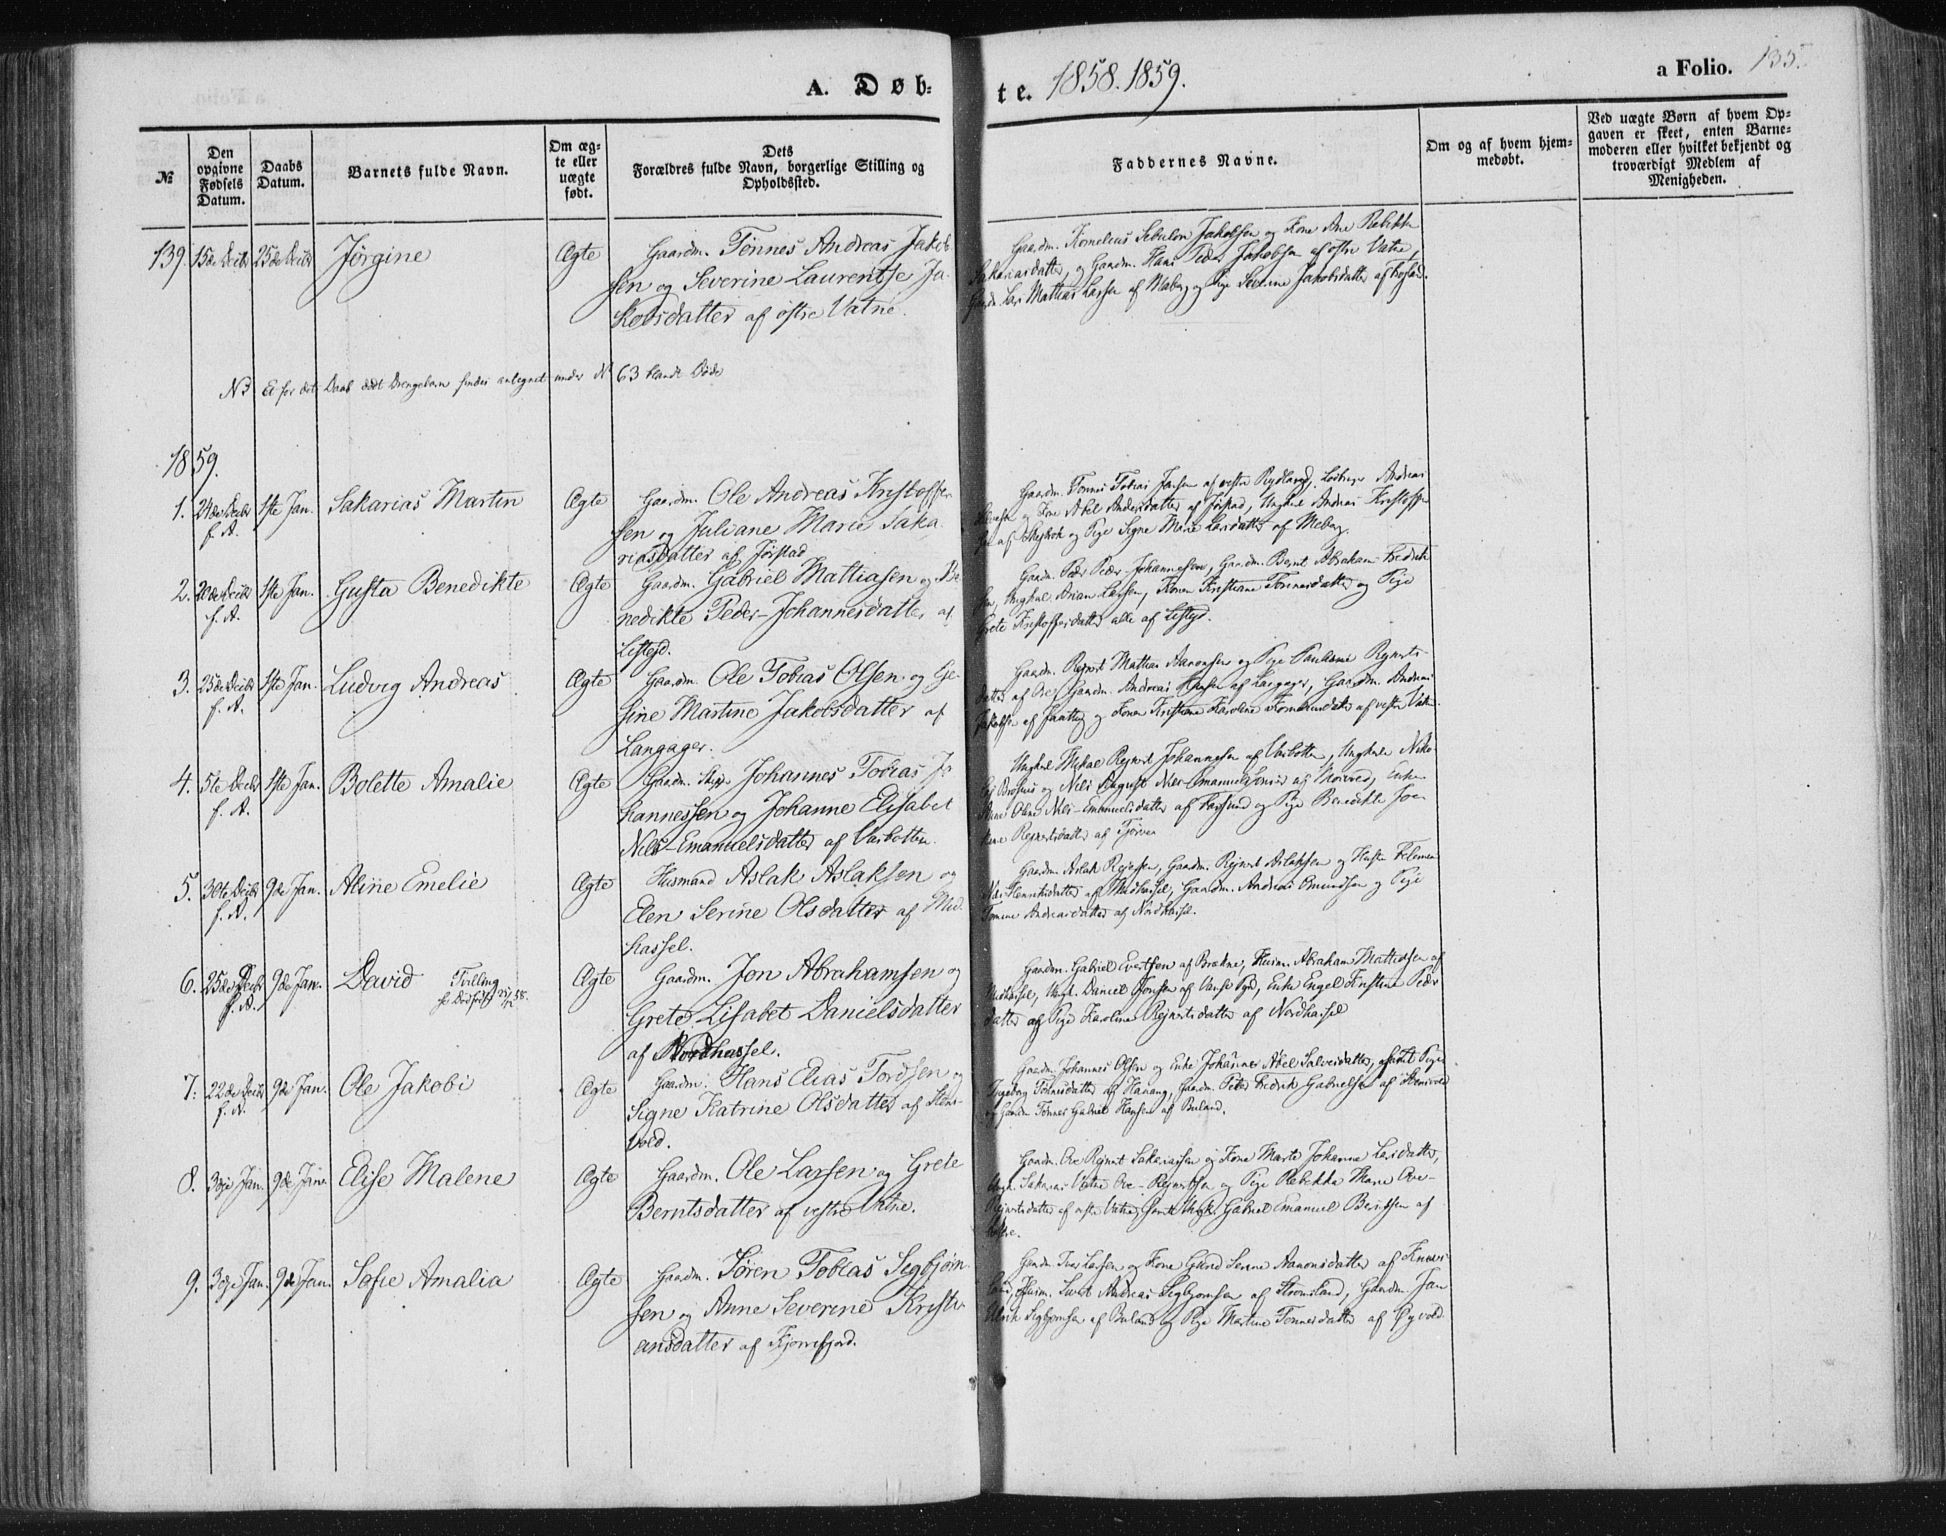 A. Døb-
te. 1858. 1859.
a Folio. 135.
№
Den opgivne Fødsels Datum.
Daabs Datum.
Barnets fulde Navn.
Om ægte eller uægte født.
Dets Forældres fulde Navn, borgerlige Stilling og Opholdssted.
Faddernes Navne.
Om og af hvem hjemmedøbt.
Ved uægte Børn af hvem Opgaven er skeet, enten Barnemoderen eller hvilket bekjendt og troværdigt Medlem af Menigheden.
139. 15de Decbr 25de Decbr Jørgine Ægte Gaardm. Tønnes Andreas Jakob
sen og Severine Laurentse Ja-
kobsdatter af østre Vatne.
Gaardm. Kornelius Sebulon Jakobsen og Kone Ane Rebekka
Sakariasdatter, og Gaardm. Hans Peder Jakobsen af østre Vatne,
Gaardm. Lars Mathias Larsen af Meberg og Pige Severine Jakobsdatter af
NB Et før det Daab død Drengebarn findes antegnet under N 63 blandt Døde
1859.
1. 24de Decbr f. A. 1ste Jan. Sakarias Martin Ægte Gaardm. Ole Andreas Kristoffer
sen og Juliane Marie Saka
riasdatter af Jørstad
Gaardm. Tønnes Tobias Jansen af vestre Andreas
og Kone Abel Andersdatter af Jørstad, Ungkarl Andreas Kristoffer
sen af og Pige Signe Marie Larsdatter af Meberg.
2. f. A. 1ste Jan. Gusta Benedikte Ægte Gaardm. Gabriel Mattiasen og Be
nedikte Peder-Johannesdatter af
Listejd.
Gaardm. Peder Peder-Johannesen, Gaardm. Bernt Abraham Fredrik
sen, Ungkarl Arian Larsen, Konen Kristiane Tønnesdatter og Pige
Grete Kristoffersdatter alle af Listejd.
3. 25de Decbr f. A. 1ste Jan. Ludvig Andreas Ægte Gaardm. Ole Tobias Olsen og Ge-
sine Martine Jakobsdatter af
Langager.
Gaardm. Rejnert Mathias Aanonsen og Pige Rejnerts-
datter af Ore, Gaardm. Andreas Hansen af Langager, Gaardm. Andreas
Jakobsen af og Konen Kristiane Karoline af vestre Vatne.
4. 5te Decbr f. A. 1ste Jan. Bolette Amalie Ægte Gaardm. Johannes Tobias Jo
hannessen og Johanne Elisabet
Nels-Emanuelsdatter af Varbotten.
Ungkarl Mikal Rejnert Johannesen af Varbotten, Ungkarle Niko-
og Nels August Nels-Emanuelsønner af Enke
Olene Nels-Emanuelsdatter af Farsund og Pige Benedikte
Rejnertsdatter af Tjørve
5. 30te Decbr f. A. 9de Jan. Aline Emelie Ægte Husmand Aslak Aslaksen og
Elen Serine Olsdatter af Mid
hassel.
Gaardm. Aslak Gaardm. Rejnert Aslaksen og Hustru
Nels-Henriksdatter af Midhassel, Gaardm. Andreas Omundsen og Pige
Tomine Andreasdatter af Nordhassel.
6. 25de Decbr f. A. 9de Jan. David Tvilling
25/12 58. Ægte Gaardm. Jon Abrahamsen og
Grete Lisabet Danielsdatter
af Nordhassel.
Gaardm. Gabriel Evertsen af Brekne, Huusm. Abraham Mattiassen af
Midhassel, Ungk. Daniel Jonsen af Vanse Pgd, Enke Engel Kirstine Peder
datter og Pige Karoline Rejnertsdatter af Nordhassel
7. 22de Decbr f. A. 9de Jan. Ole Jakobi Ægte Gaardm. Hans Elias Tordsen og
Signe Katrine Olsdatter af Stens-
vold.
Gaardm. Johannes Olsen og Enke Johannes Abel Salvesdatter, samt Pige
Ingeborg Tønnesdatter af Hanang, Gaardm. Peter Fredrik Gabrielsen af Stensvold
og Gaardm. Tønnes Gabriel Hansen af Buland.
8. 3dje Jan. 9de Jan. Elise Malene Ægte Gaardm. Ole Larsen og Grete
Berntsdatter af vestre Vatne.
Gaardm. Ove Rejnert Sakariassen og Kone Marte Johanne Larsdatter,
Ungk. Sakarias Ove-Rejnertsen og Pige Rebekka Marie Ove-
Rejnertsdatter af vestre Vatne, samt Ungk. Gabriel Emanuel Berntsen af
9. 3dje Jan. 9de Jan. Sofie Amalia Ægte Gaardm. Søren Tobias Segbjørn
sen og Anne Severine Kristi-
ansdatter af Kjørrefjord.
Gaardm. Ivar Larsen og Kone Gunild Serine Aanonsdatter af
Huusm. Andreas Segbjørnsen af Gaardm. Jan
Ulrik Segbjørnsen af Buland og Pige Martine Tønnesdatter af Øyvold.